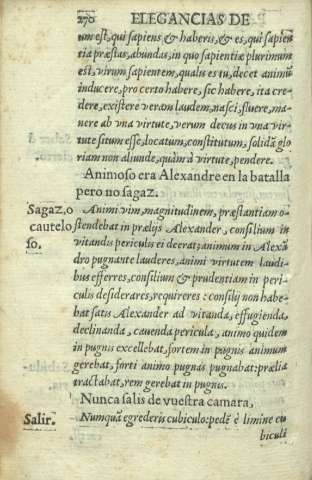 270 ELEGANCIAS DE
um est, qui sapiens & haberis, & es, qui sapien
tia præstas, abundas, in quo sapientiæ plurimum
est, virum sapientem, qualis es tu, decet animũ
inducere, pro certo habere, sic habere, ita cre-
dere, existere veram laudem, nasci, fluere, ma-
nere ab vna virtute, verum decus in vna vir-
tute situm esse, locatum, constitutum, solidã glo
riam non aliunde, quàm à virtute, pendere.
Animoso era Alexandre en la batalla
pero no sagaz.
Sagaz, o
cautelo
so.
Animi vim, magnitudinem, præstantiam o-
stendebat in prælijs Alexander, consilium in
vitandis periculis ei deerat; animum in Alexã
dro pugnante lauderes, animi virtutem laudi
bus efferres, consilium & prudentiam in peri-
culis desiderares, requireres: consilij non habe-
bat satis Alexander ad vitanda, effugienda,
declinanda, cauenda pericula, animo quidem
in pugnis excellebat, fortem in pugnis animum
gerebat, forti animo pugnas pugnabat: prælia
tractabat, rem gerebat in pugnis.
Nunca salis de vuestra camara,
Salir.
Nunquã egrederis cubiculo: pedẽ è limine cu
biculi